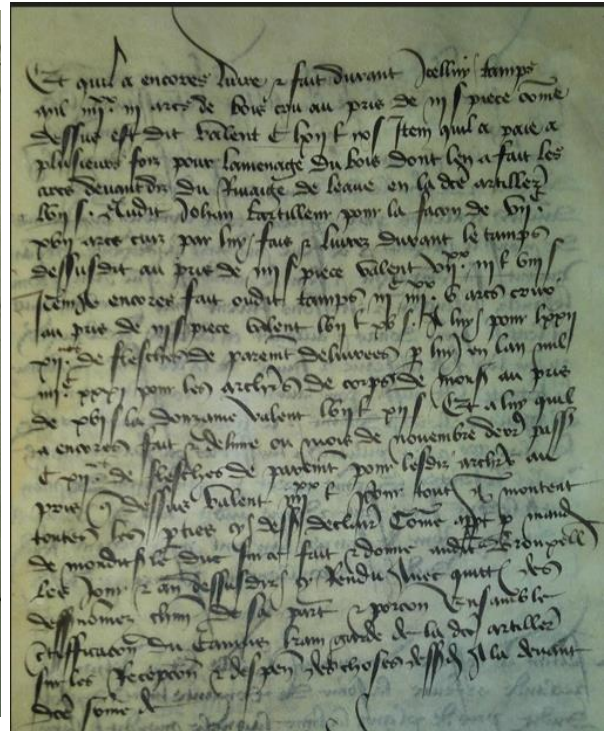 Et quil a encores livre & fait durant Icellui temps
quil iiijc iij arcs de bois cru au pris de iij s piece come
dessus est dit valent C lxij l x s Item quil a paie a
plusieurs foiz pour lamenage du bois dont len a fait les
arcs devantdiz du Rivaige de leaue en la dce artillerie
lvij s. Audit Johan pour la facon de vijc
xvij arcs cuiz par luy fais & livrez durant le temps
dessusdit au pris de iiij s piece valent viixx iij l viij s
Item a encores fait oudit temps iijc iiijxx v arcs
au pris de iij s piece valent lvij l xv s. A luy pour lxxij
xijnes de flesches de paremt delivrees p luy en lan mil
iiijc xxxi pour les archrs de corps de mondis au pris
de xvj s la donzaine valent lvij l xij s Et a luy quil
a encores fait & delivre ou mois de novembre derr passe
C xijnes de flesches de paremt pour lesdiz archrs au
pris q dessus valent iiijxx l pour tout q montent
toutes les pties cy dess declair Come appt p mand
de mondis le duc sur ce fait & donne audit Brouxell
les jour & an dessusdiz cy Rendu Avec quitt des
dessnomez chun de sa part & porcon Ensamble
certifficacon du garde de la dce artiller
sur les Recepcon & despen des choses A la devant
dce some de